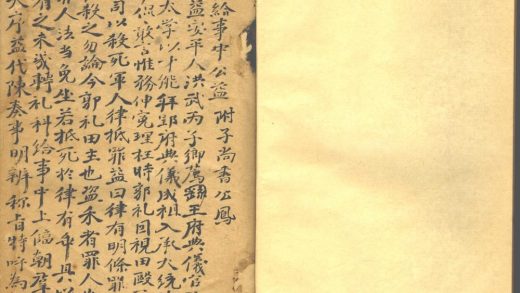 給事中公益 附子尚書公鳳
益安平人洪武丙子鄉薦王府典儀官
太學以才能拜郢府典儀成祖入承大統
侃敢言惟務伸冤理枉時郭礼回視田毆
司以殺死軍人律抵罪益曰律有明條罪
殺之勿論今郭礼田主也盜禾者罪人
人法当免坐若抵死於律有乖具
有之未幾轉礼科給事中上臨朝
序益代陳奏事明辨称旨特呼為